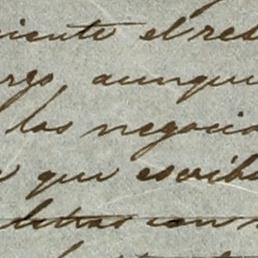 ciente el res
rgo aunque
las negocio
que escriba
letras con